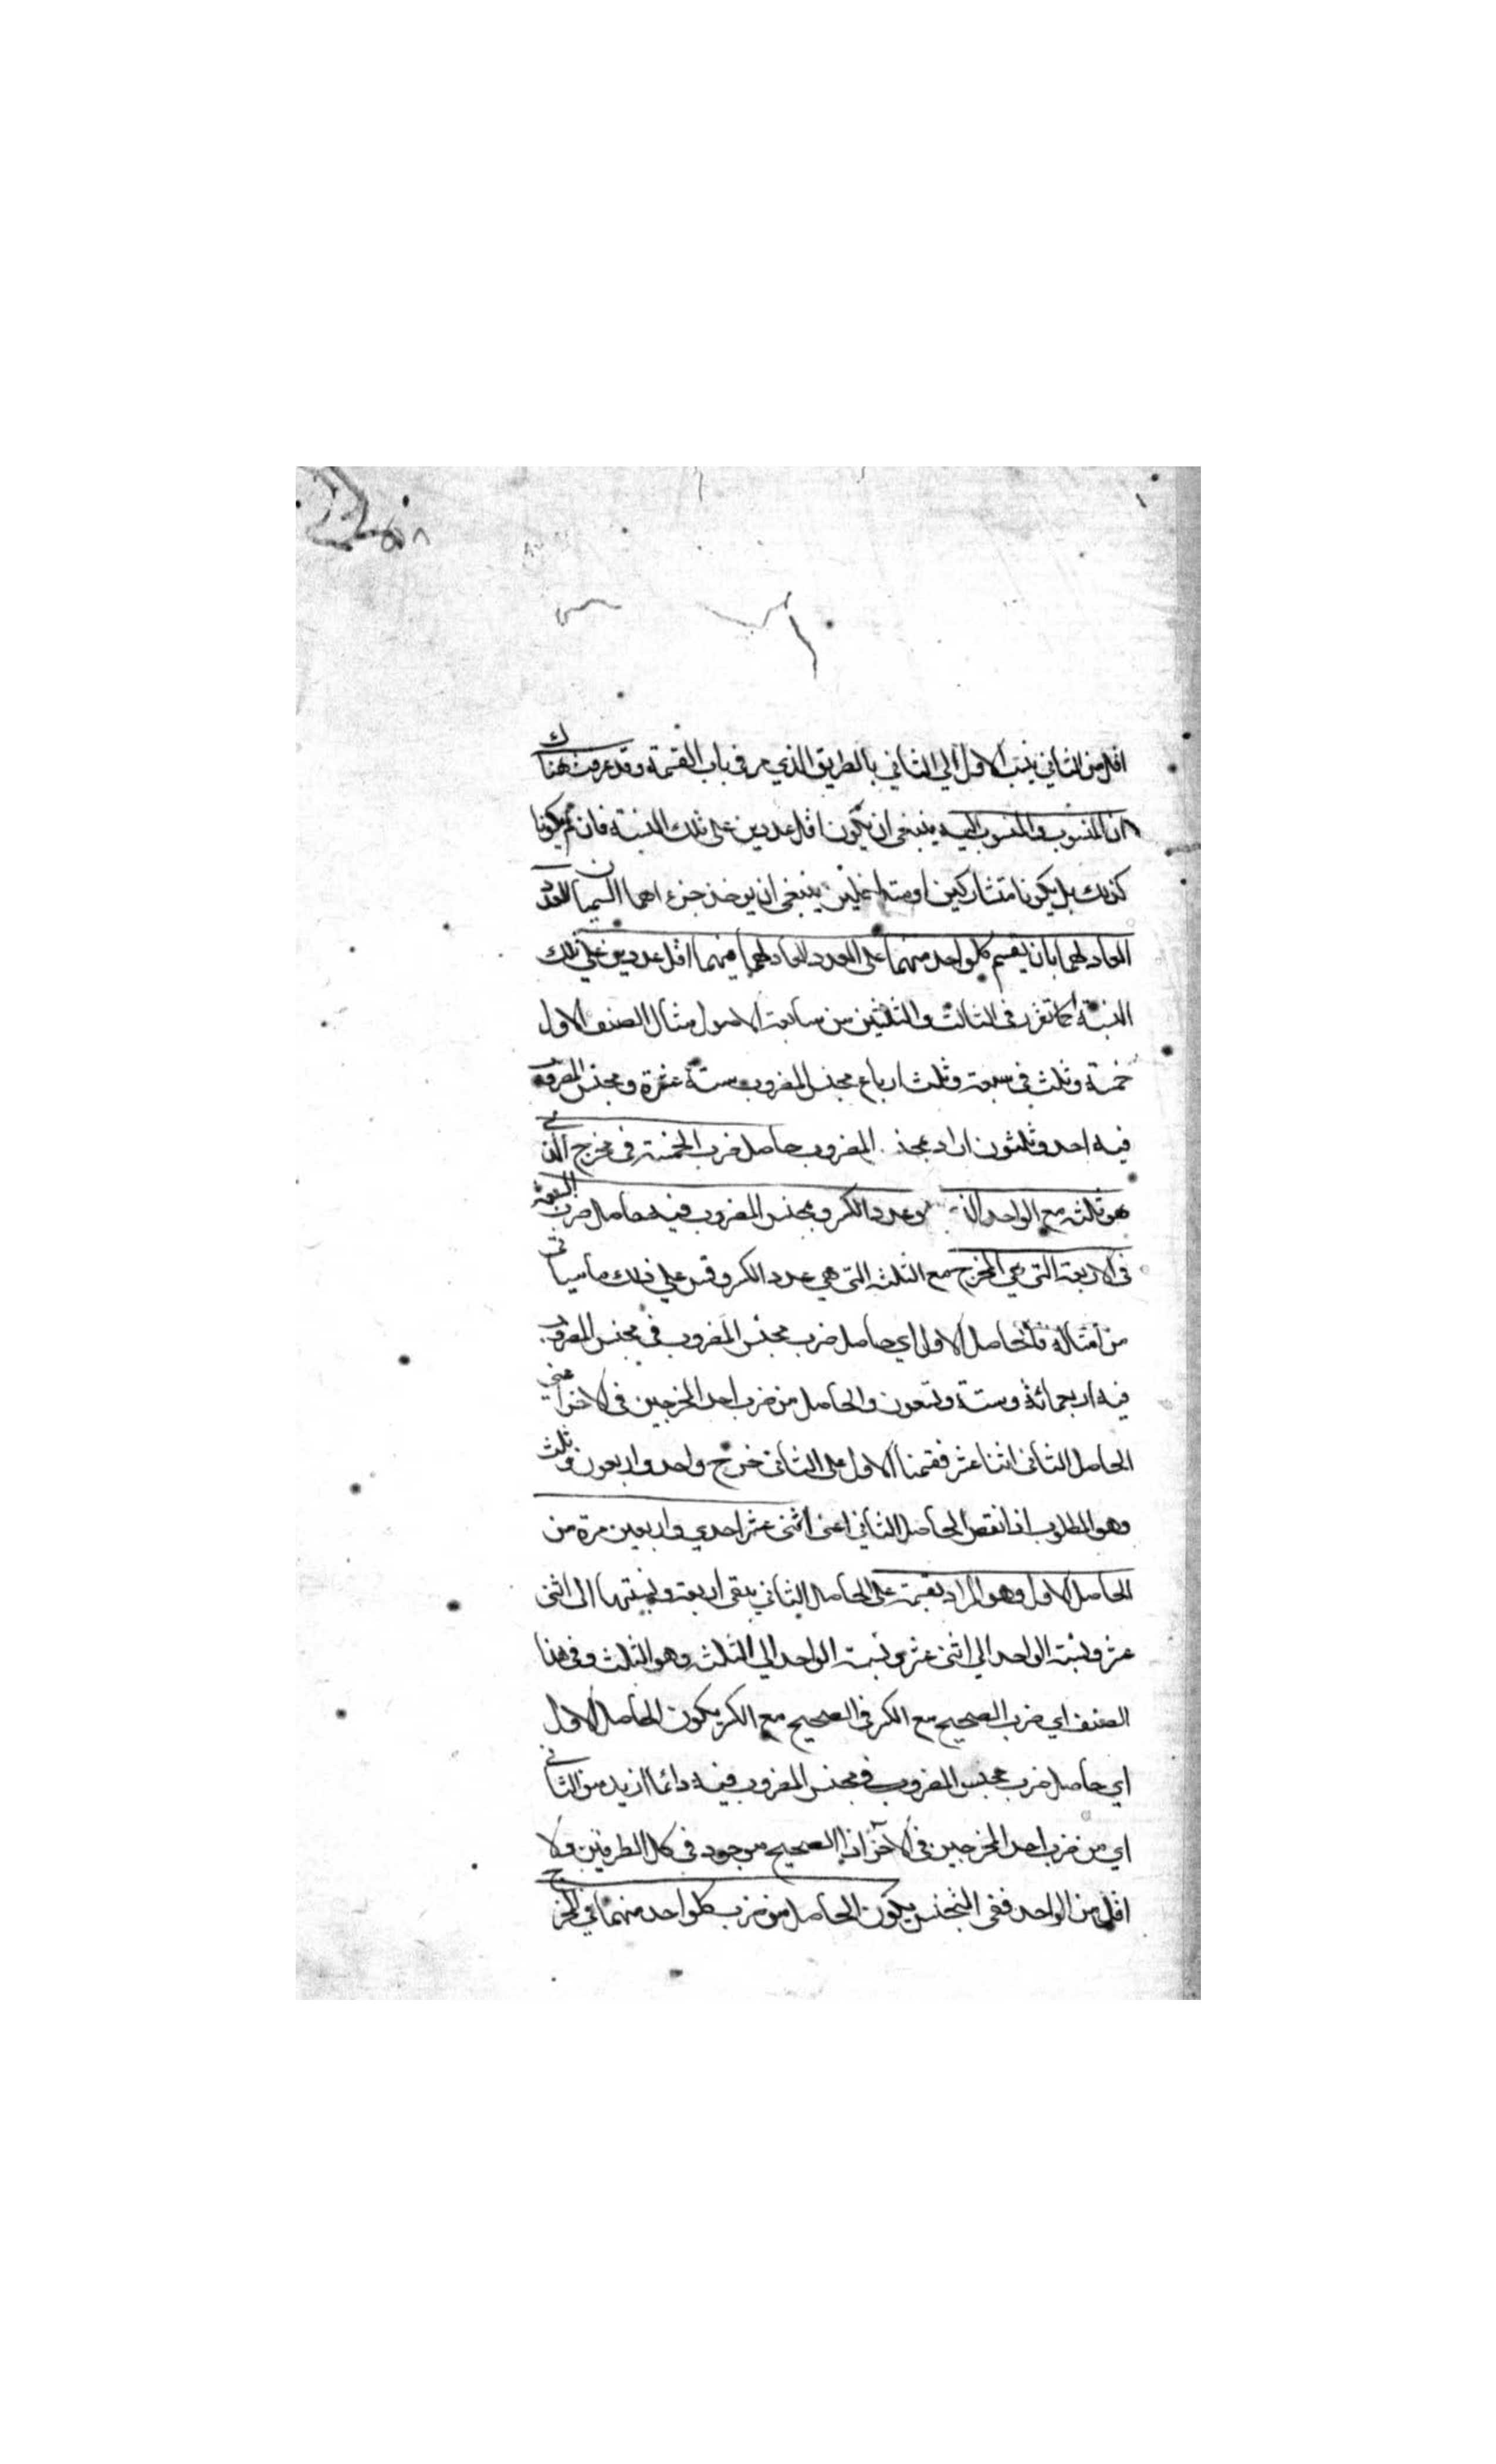 اقل من الثاني ينسب الاول الى الثاني بالطريق الذي مر في باب القسمة وقد عرفت هناك
ان المنسوب والمنسوب اليه ينبغي ان يكون اقل عددين على تلك النسبة فان لم يكونا
كذلك بل يكونا متشاركين او متداخلين ينبغي ان يوخذ جزء اهما السميان للعدد
العاد لهما بان يقسم كلواحد منهما على العدد العاد لهما فهما اقل عددين على تلك
النسبة كما تقرر في الثالث والثلثين من سابعة الاصول مثال الصنف الاول
خمسة وثلث في سبعة وثلث ارباع مجنس المضروب ستة عشرة ومجنس المضروب
فيه احد وثلثون اراد بمجنس المضروب حاصل ضرب الخمسة في مخرج الذي
هو ثلثه مع الواحد الذي هو عدد الكسر ومجنس المضروب فيه حاصل ضرب السبعة
في الاربعة التي هي المخرج مع الثلثة التي هي عدد الكسر وقس على ذلك ما سياتي
من امثاله فالحاصل الاول اي حاصل ضرب مجنس المضروب في مجنس المضروب
فيه اربعمائة وستة وتسعون والحاصل من ضرب احد المخرجين في الاخر اعني
الحاصل الثاني اثنا عشر فقسمنا الاول على الثاني خرج واحد واربعون وثلث
وهو المطلوب اذا نقص الحاصل الثاني اعني اثنى عشر احدي واربعين مرة من
الحاصل الاول وهو المراد بقسمته على الحاصل الثاني يبقى اربعة ونسبتها الى اثنى
عشر ونسبة الواحد الى اثنى عشر ونسبة الواحد الى الثلثة وهو الثلث وفي هذا
الصنف اي ضرب الصحيح مع الكسر في الصحيح مع الكسر يكون الحاصل الاول
اي حاصل ضرب مجنس المضروب في مجنس المضروب فيه دائما ازيد من الثاني
اي من ضرب احد المخرجين في الاخر اذ الصحيح موجود في كل الطرفين ولا
اقل من الواحد ففي التجنيس يكون الحاصل من ضرب كلواحد منهما في المخرج